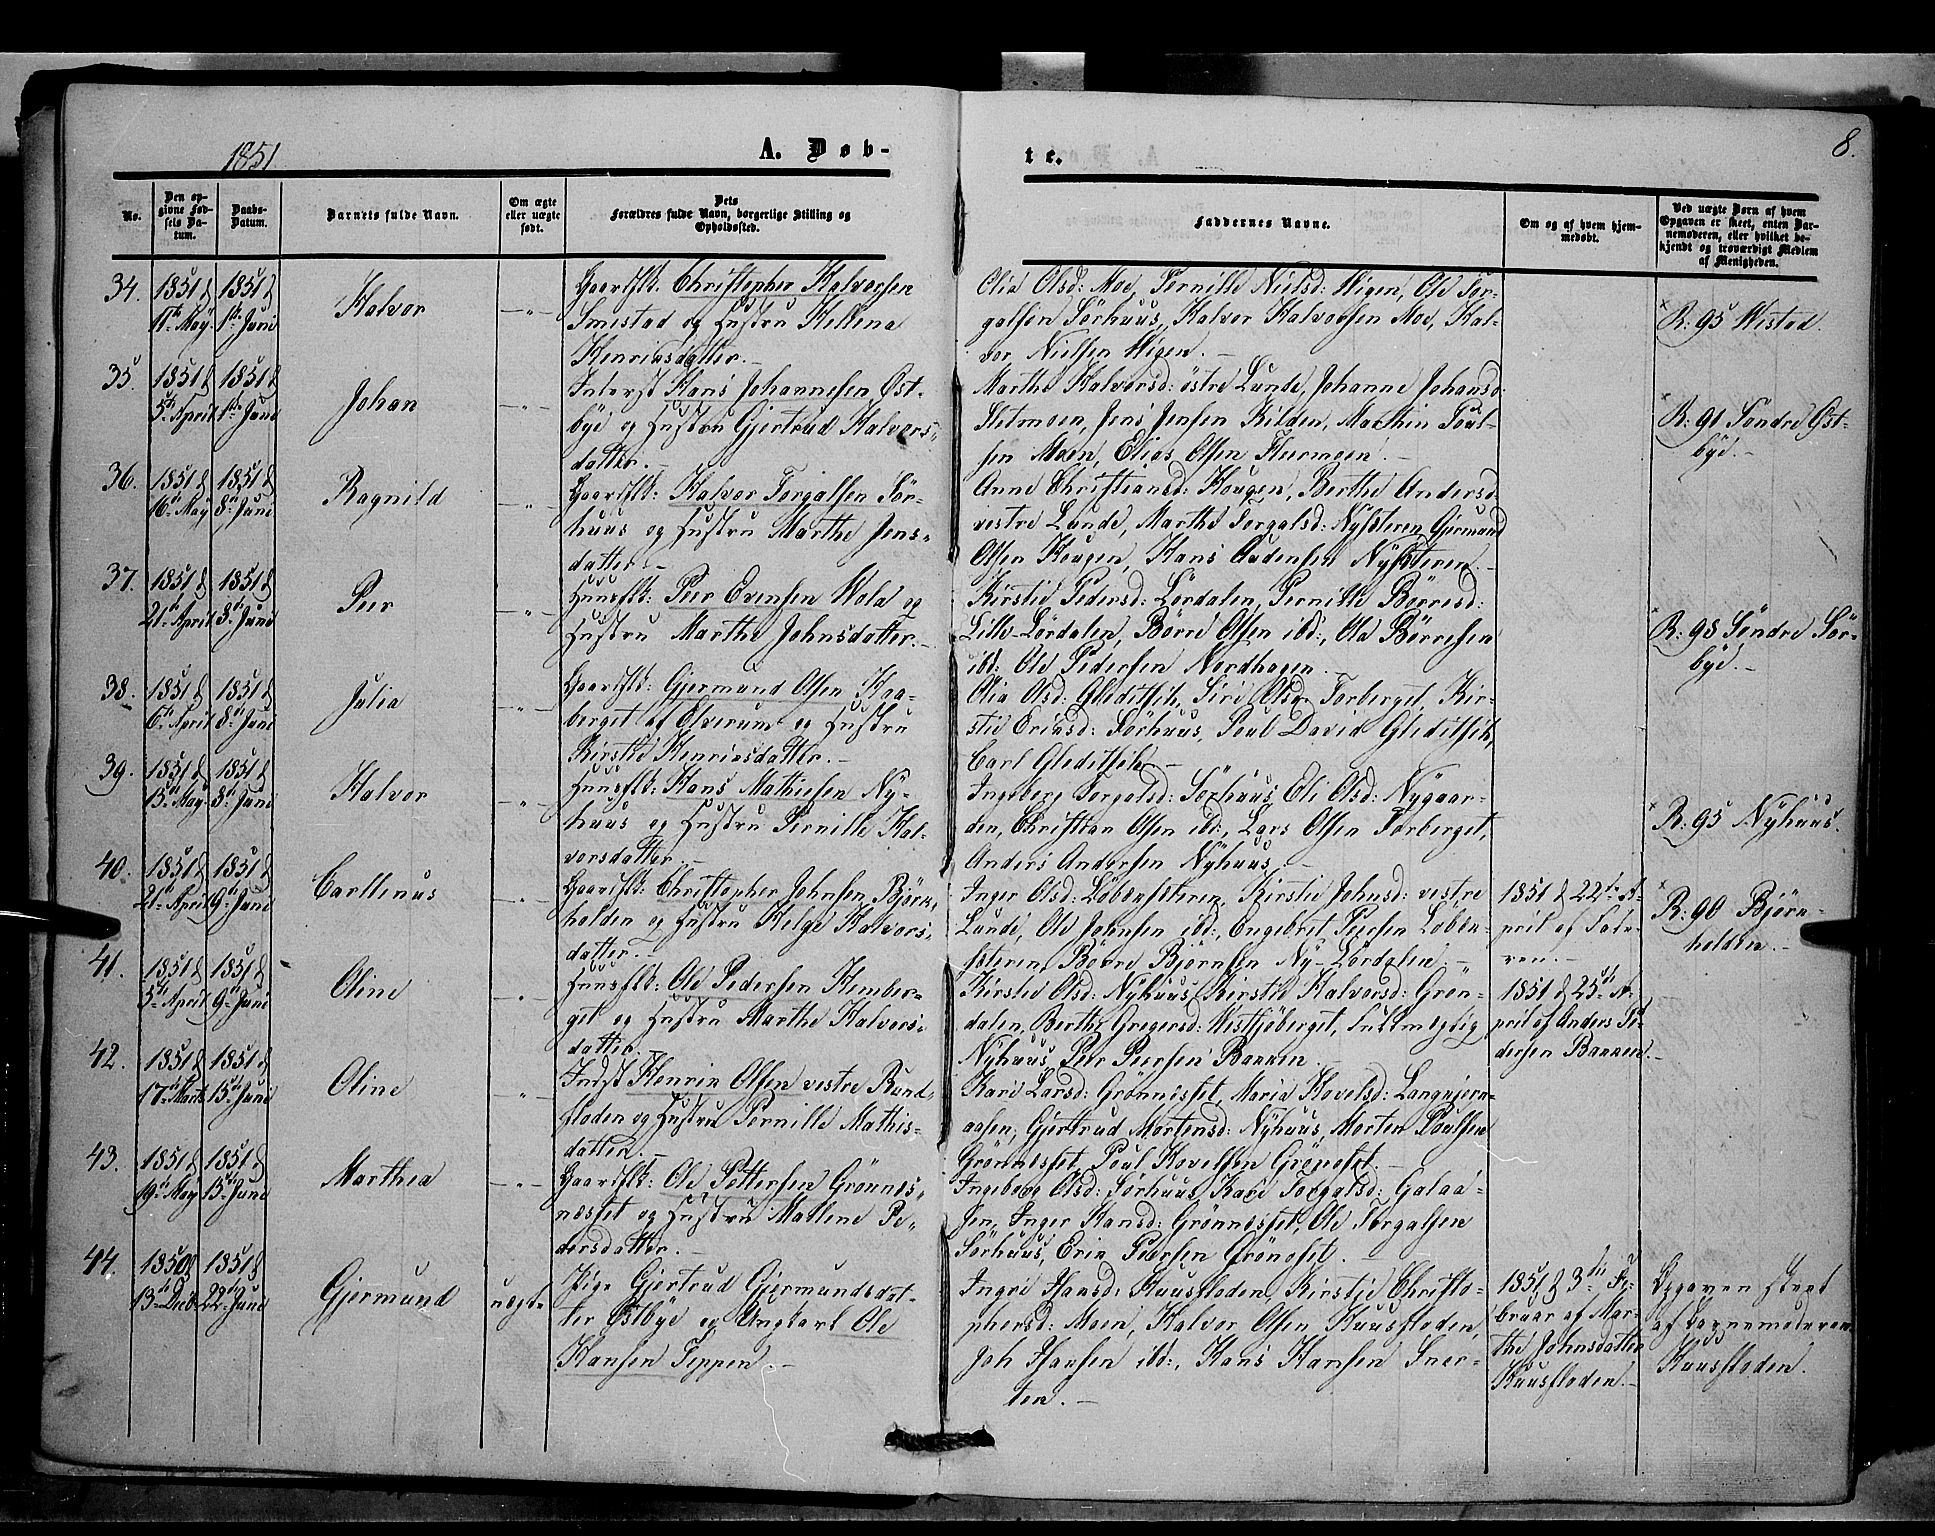 1851
A. Døb-
te.
8.
No.
Den op-
givne Fød-
sels Da-
tum.
Daabs-
Datum.
Barnets fulde Navn.
Om ægte
eller uægte
født.
Dets
Forældres fulde Navn, borgerlige Stilling og
Opholdssted.
Faddernes Navne.
Om og af hvem hjem-
medøbt.
Ved uægte Børn af hvem
Opgaven er skeet, enten Bar-
nemoderen, eller hvilket be-
kjendt og troværdigt Medlem
af Menigheden.
34.
1851 d
11te May
1851 d
1ste Juni
Halvor
—"—
Gaardsk: Christopher Halvorsen
Smestad og Hustru Hellena
Henriksdatter. —
Olia Olsd: Moe, Pernille Nielsd: Wigen, Ole Tor-
galsen Sörhuus, Halvor Halvorsen Moe, Hal-
vor Nielsen Wigen. —
R: 95 Wistad.
35.
1851 d
5te April
1851 d
1ste Juni
Johan
—"—
Hans Johannesen Øst-
bÿe og Hustru Gjertrud Halvors-
datter. —
Marthe Halvorsd: østre Lunde, Johanne Johansd:
Sletmoen, Jens Jensen Kilden, Mathis Poul-
sen Moen, Elias Olsen Sturmoen. —
R: 91 Søndre Øst-
bÿe. —
36.
1851 d
16te May
1851 d
8de Juni
Ragnild
—"—
Gaardsk: Halvor Torgalsen Sør-
huus og Hustru Marthe Jens-
datter. —
Anne Christiansd: Hougen, Berthe Andersd:
vestre Lunde, Marthe Torgalsd: Nÿsteren, Gjermund
Olsen Hougen, Hans Audensen Nÿsteren. —
37.
1851 d
21de April
1851 d
8de Juni
Peer
—"—
Huusfk: Peer Evensen Wola og
Hustru Marthe Johnsdatter. —
Kirstie Pedersd: Lördalen, Pernille Börresd:
Lille-Lördalen, Börre Olsen ibd:, Ole Börresen
ibd: Ole Pedersen Nordhagen. —
R: 98 Söndre Sör-
bÿe. —
38.
1851 d
6te April
1851 d
8de Juni
Julia
—"—
Gaardsk: Gjermund Olsen Haa-
berget af Elverum og Hustru
Kirstie Henriksdatter. —
Olia Olsd: Gleditsch, Siri Olsd: Torberget, Kir-
stie Eriksd: Sörhuus, Poul David Gleditsch,
Carl Gleditsch. —
39.
1851 d
15de May
1851 d
8de Juni
Halvor
—"—
Huusfk: Hans Mathisen Ny-
huus og Hustru Pernille Hal-
vorsdatter. —
Ingeborg Torgalsd: Sörhuus, Eli Olsd: Nygaar-
den, Christian Olsen ibd:, Lars Olsen Torberget,
Anders Andersen Nÿhuus. —
R: 95 Nÿhuus.
40.
1851 d
21de April
1851 d
9de Juni
Carllenus
—"—
Gaardsk: Christopher Johnsen Björn-
holden og Hustru Helge Halvors-
datter. —
Inger Olsd: Löbersteren, Kirstie Johnsd: vestre
Lunde, Ole Johnsen ibd:, Engebret Peersen Löber-
steren, Börre Björnsen Ny-Lördalen. —
1851 d 22de A-
pril af Fade-
ren. —
R: 90 Bjørn-
holden. —
41.
1851 d
5te April
1851 d
9de Juni
Oline
—"—
Huusfk: Ole Pedersen Hember-
get og Hustru Marthe Halvors-
datter. —
Kirstie Olsd: Nÿhuus, Kirstie Halvorsd: Grön-
dalen, Berthe Gregersd: Westsjöberget, Fuldmægtig
Nÿhuus, Peer Peersen Bakken. —
1851 d 25de A-
pril af Anders Pe-
dersen Bakken. —
42.
1851 d
17de Marts
1851 d
15de Juni
Oline
—"—
Indst Henrik Olsen vestre Rund-
floden og Hustru Pernille Mathis-
datter. —
Kari Larsd: Grönnesset, Maria Hovelsd: Langkjern-
aasen, Gjertrud Mortensd: Nÿhuus, Morten Poulsen
Grönnesset, Poul Hovelsen Grönoset. —
43.
1851 d
19de May
1851 d
15de Juni
Marthea
—"—
Gaardsk: Ole Pettersen Grönnes-
næsset og Hustru Mallene Pe-
dersdatter. —
Ingeborg Olsd: Sörhuus, Kari Torgalsd: Galaa-
sen, Inger Hansd: Grönnesset, Ole Torgalsen
Sörhuus, Erik Peersen Grönoset.
44.
1850 d
13de Decb
1851 d
22de Juni
Gjermund
uægte
Pige Gjertrud Gjermundsdat-
ter Østbÿe og Ungkarl Ole
Hansen Teppen. —
Ingri Hansd: Huusfloden, Kirstie Christo-
phersd: Moen, Halvor Olsen Huusfloden,
Joh Hansen ibd:, Hans Hansen Sner-
ten. —
1851 d 3die Fe-
bruar af Mar-
the Johnsdatter
Huusfloden. —
Opgaven skeet
af Barnemoderen
Huusfloden.